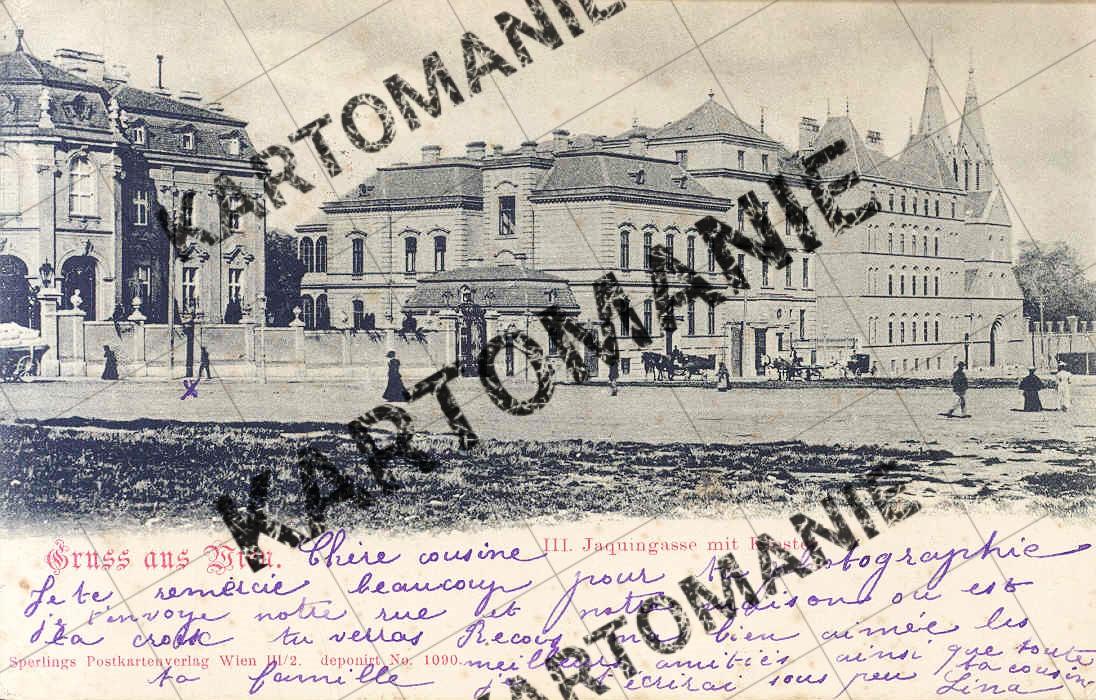 KARTOMANIE
KARTOMANIE
KARTOMANIE
KARTOMANIE
KARTOMANIE
Gruss aus Wien. Chère cousine III. Jaquingasse mit Kloster
Je te remercie beaucoup pour ta photographie
je t'envoye notre rue et notre maison ou est
la croix tu verras Reçois ma bien aimée les
Sperlings Postkartenverlag Wien III/2. deponirt No. 1090. meilleurs amitiés ainsi que toute
ta famille je t'écrirai sous peu ta cousine
Lina